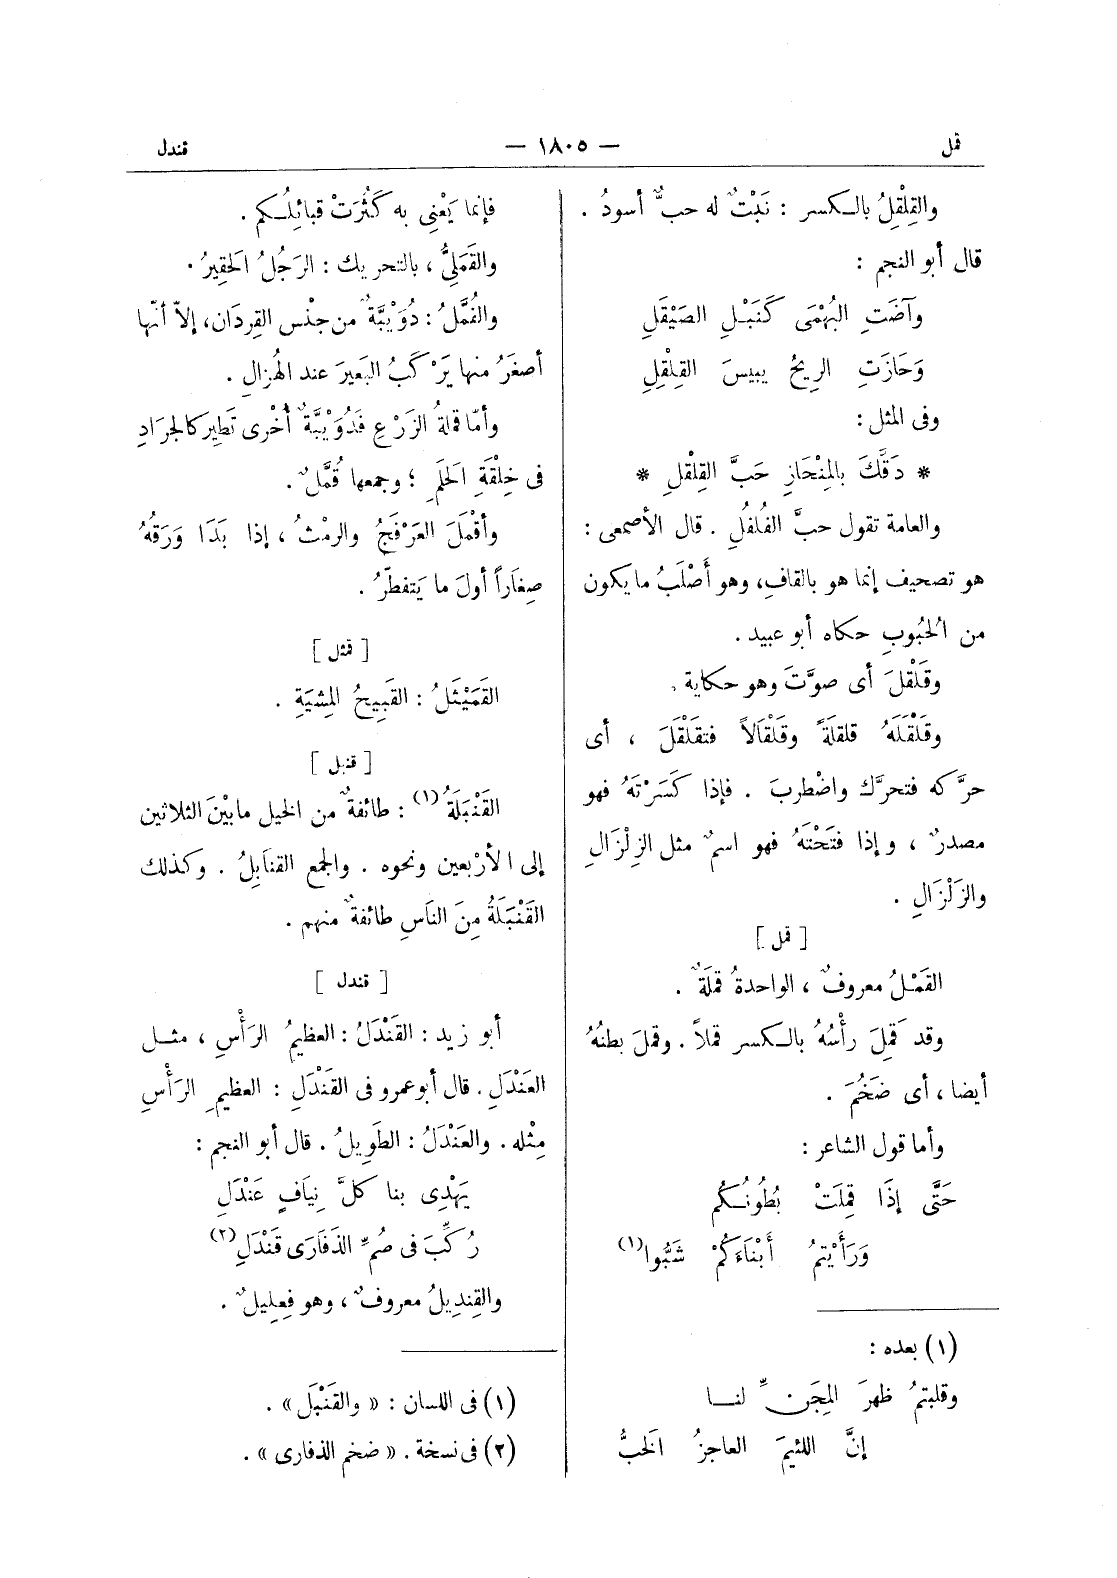 قمل
— ١٨٠٥ —
قندل
والقِلْقِلُ بالكسر : نَبْتٌ له حبٌّ أسودُ .
قال أبو النجم :
وآضَتِ البُهْمَى كَنَبْلِ الصَيْقَلِ
وَحَازَتِ الرِيحُ يبيسَ القِلْقِلِ
وفى المثل :
* دَقَّكَ بالمِنْحَازِ حَبَّ القِلْقِلِ *
والعامة تقول حبَّ الفُلفُلِ . قال الأصمعى :
هو تصحيف إنما هو بالقافِ، وهو أَصْلَبُ ما يكون
من الحُبُوبِ حكاه أبو عبيد .
وقَلْقلَ أى صوَّتَ وهو حكاية .
وقَلْقَلَهُ قلقلَةً وقَلْقَالاً فتقَلْقَلَ ، أى
حرَّكه فتحرَّك واضْطربَ . فإذا كَسَرْتَهُ فهو
مصدرٌ ، وإذا فتَحْتَهُ فهو اسمٌ مثل الزِلْزَالِ
والزَلْزَالِ .
[ قمل ]
القَمْلُ معروفٌ ، الواحدةُ قملَةٌ .
وقد قَمِلَ رأْسُهُ بالكسر قملاً . وقملَ بطنُهُ
أيضا ، أى ضَخُمَ .
وأما قول الشاعر :
حَتَّى إذَا قَمِلَتْ بُطُونُكُم
وَرَأَيْتمُ أَبْنَاءَكُمْ شَبُّوا (١)
(١) بعده :
وقلبتمُ ظهرَ المِجَنِّ لنا
إنَّ اللئيمَ العاجزُ الخَبُّ
فإنما يَعْنِى به كَثُرَتْ قبائِلُكم .
والقَمَلِىُّ ، بالتحريك : الرَجُلُ الحَقِيرُ .
والقُمَّلُ : دُوَيْبَّةٌ من جنْس القِردَان، إلاّ أنّها
أصغَرُ منها يَرْكَبُ البَعيرَ عند الهُزالِ .
وأمّا قملةُ الزَرْعِ فَدُوَيْبَّةٌ أُخْرى تَطيِر كالجرَادِ
فى خِلْقَةِ الحَلَمِ ؛ وجمعها قُمَّلٌ .
وأَقْمَلَ العَرْفَجُ والرمْثُ ، إذا بَدَا وَرَقُهُ
صِغَاراً أولَ ما يَتفطّرُ .
[ قمثل ]
القَمَيْثَلُ : القَبِيحُ المِشيَةِ .
[ قنبل ]
القَنْبَلَةُ (١) : طائفةٌ من الخيل مابَيْنَ الثلاثين
إلى الأرْبعين ونحوه . والجمع القنَابِلُ . وكذلك
القَنْبَلَةُ مِنَ النَاسِ طائفةٌ منهم .
[ قندل ]
أبو زيد : القَنْدَلُ : العظيمُ الرَأْسِ ، مثل
العَنْدَلِ . قال أبو عمرو فى القَنْدَلِ : العظيمِ الرَأْسِ
مِثْله . والعَنْدَلُ : الطَوِيلُ . قال أبو النجم :
يَهْدِى بنا كلَّ نِيَافٍ عَنْدَلِ
رُكِّبَ فى صُمِّ الذَفَارَى قَنْدَلِ (٢)
والقِندِيلُ معروفٌ ، وهو فِعلِيلٌ .
(١) فى اللسان : « والقَنْبَل » .
(٢) فى نسخة . « ضخم الذفارى » .